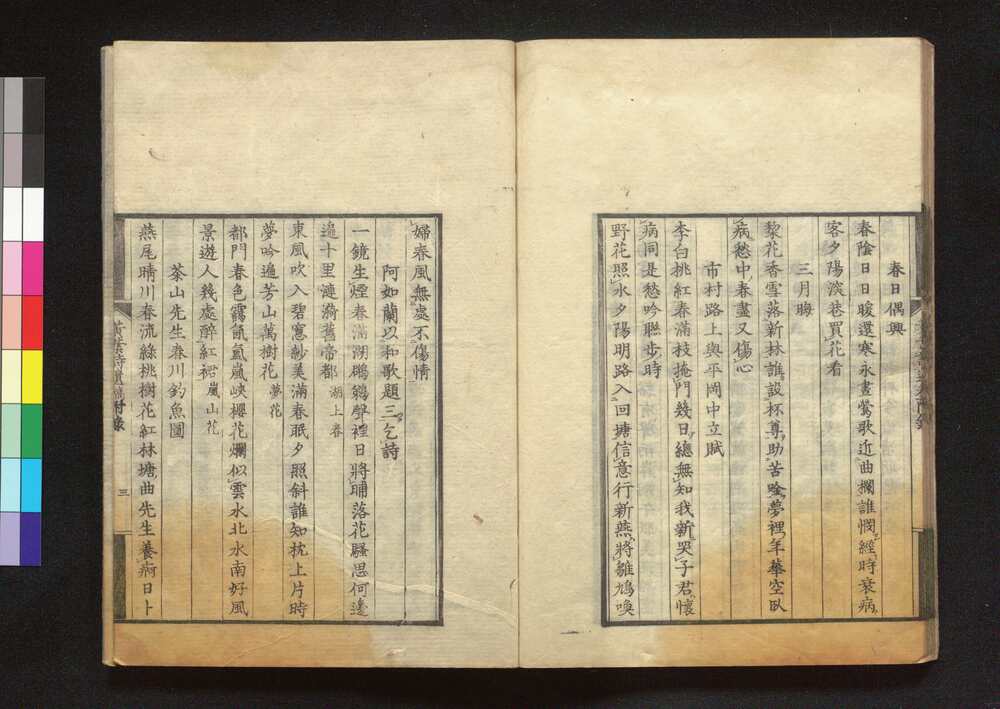 春日偶興
春陰日日暖還寒永晝鶯歌近曲欄誰憫經時衰病
客夕陽淡巷買花看
三月晦
黎花香雪落新林誰設杯尊助苦唫夢裡年華空臥
病愁中春盡又傷心
市村路上與平岡中立賦
李白桃紅春滿枝掩門幾日總無知我新哭子君懷
病同是愁吟聯步時
野花照水夕陽明路入回塘信意行新燕將雛鳩喚
婦春風無處不傷情
阿如蘭以和歌題三乞詩
一鏡生煙春滿湖鵬鷯聲裡日將晡落花騷思何邊
遍十里漣漪舊帝都 湖上春
東風吹入碧窻紗美滿春眠夕照斜誰知枕上片時
夢吟遍芳山萬樹花 夢花
都門春色靄氤氳嵐峽櫻花爛似雲水北水南好風
景遊人幾處醉紅裙 嵐山花
茶山先生春川釣魚圖
燕尾晴川春流綠桃樹花紅林塘曲先生養痾日卜
黃葉夕陽 附錄
三